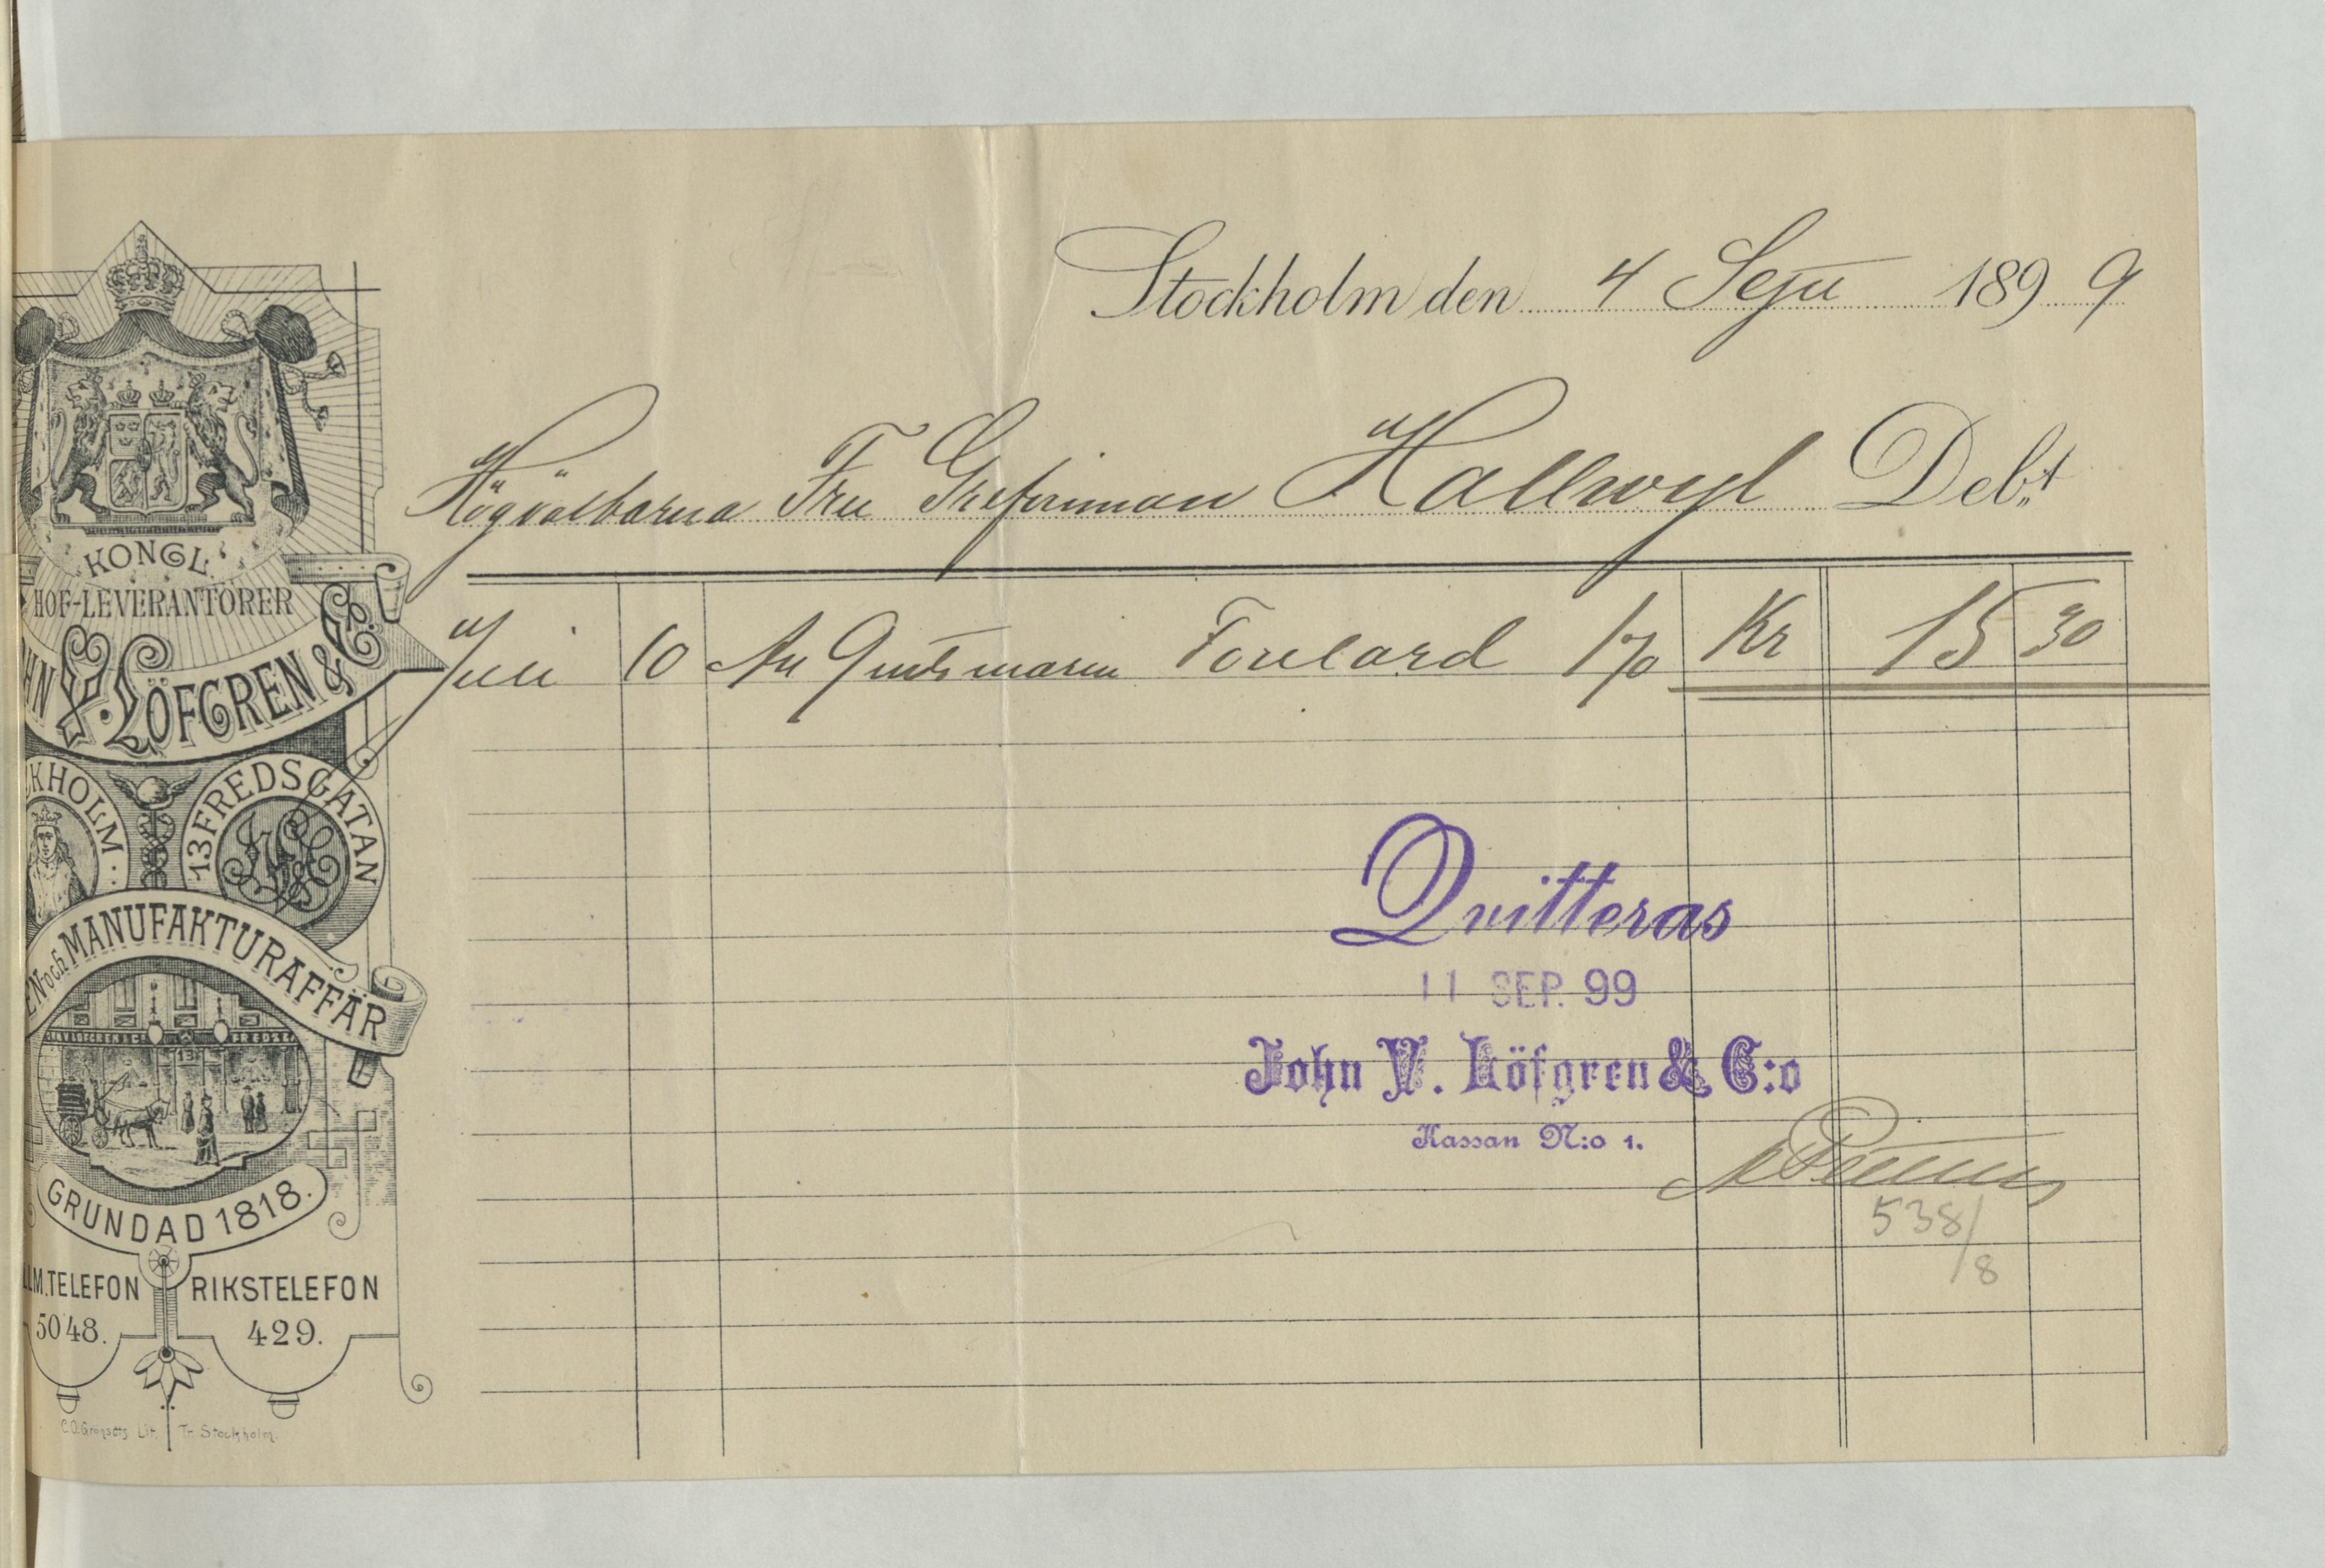 Stockholm den 4 Sept 1899
Högvälborna Fru Grefvinnan Hallwyl Debt
KONGL.
HOF-LEVERANTÖRER
HN V. LÖFGREN & C:o
Juli 10 An 9 mtr marin Foulard 1/70 Kr 15 30
KHOLM.
13 FREDSGATAN
EN och MANUFAKTURAFFÄR
FREDS
13
Qvitteras
11 SEP. 99
John V. Löfgren & C:o
Kassan N:o 1.
538/8
GRUNDAD 1818.
LM.TELEFON RIKSTELEFON
5048. 429.
Lit. Tr. Stockholm.